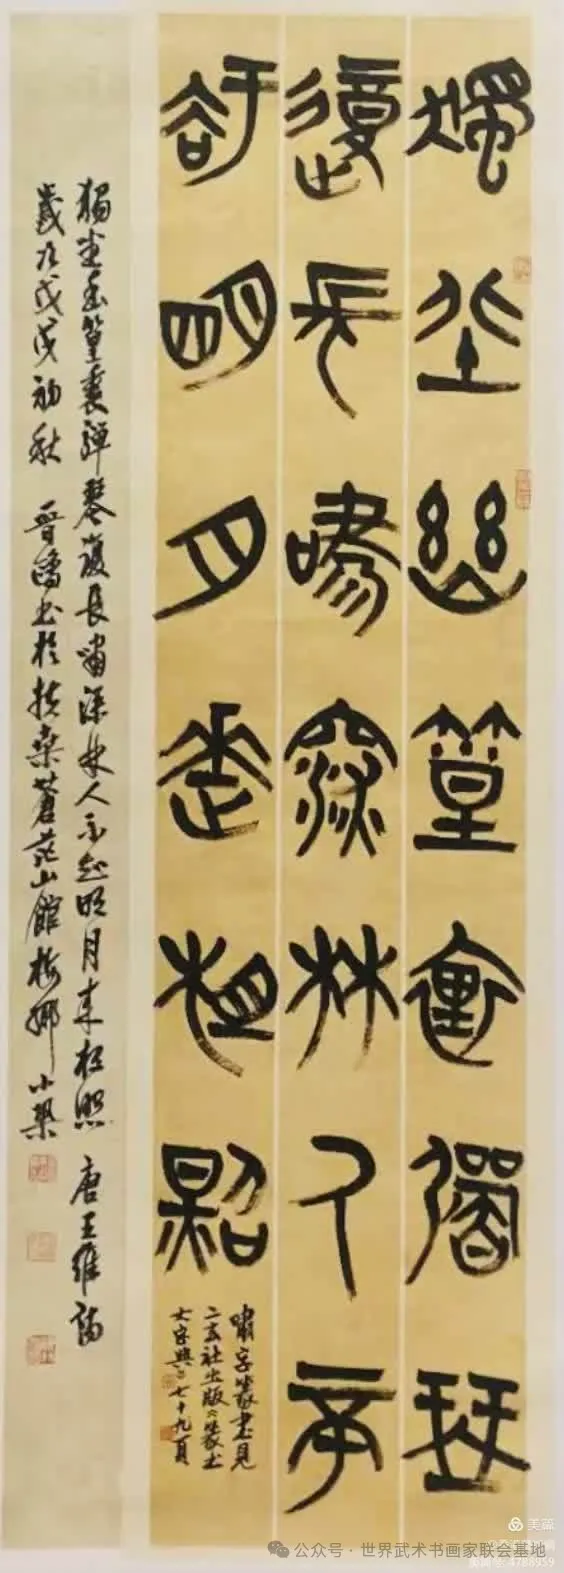 獨坐幽篁裏彈琴
復長嘯深林人不
知明月來相照
嘯字篆書見
二玄社出版《篆書
大字典》七十九頁
獨坐幽篁裏彈琴復長嘯深林人不知明月來相照 唐王維詩
歲在戊戌初秋 晉鷗書於扶桑蒼茫山館梅娜小築
美篇
公众号 · 世界武术书画家联会基地
美篇号:4788959